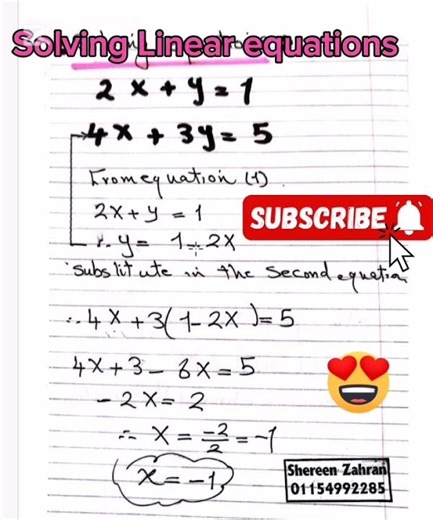 Solving Linear equations
2x + y = 1
4x + 3y = 5
From equation (1)
2x + y = 1
∴ y = 1 - 2x
SUBSCRIBE
substitute in the second equation
∴ 4x + 3(1 - 2x) = 5
4x + 3 - 6x = 5
- 2x = 2
∴ x = -2/2 = -1
x = -1
Shereen Zahran
01154992285